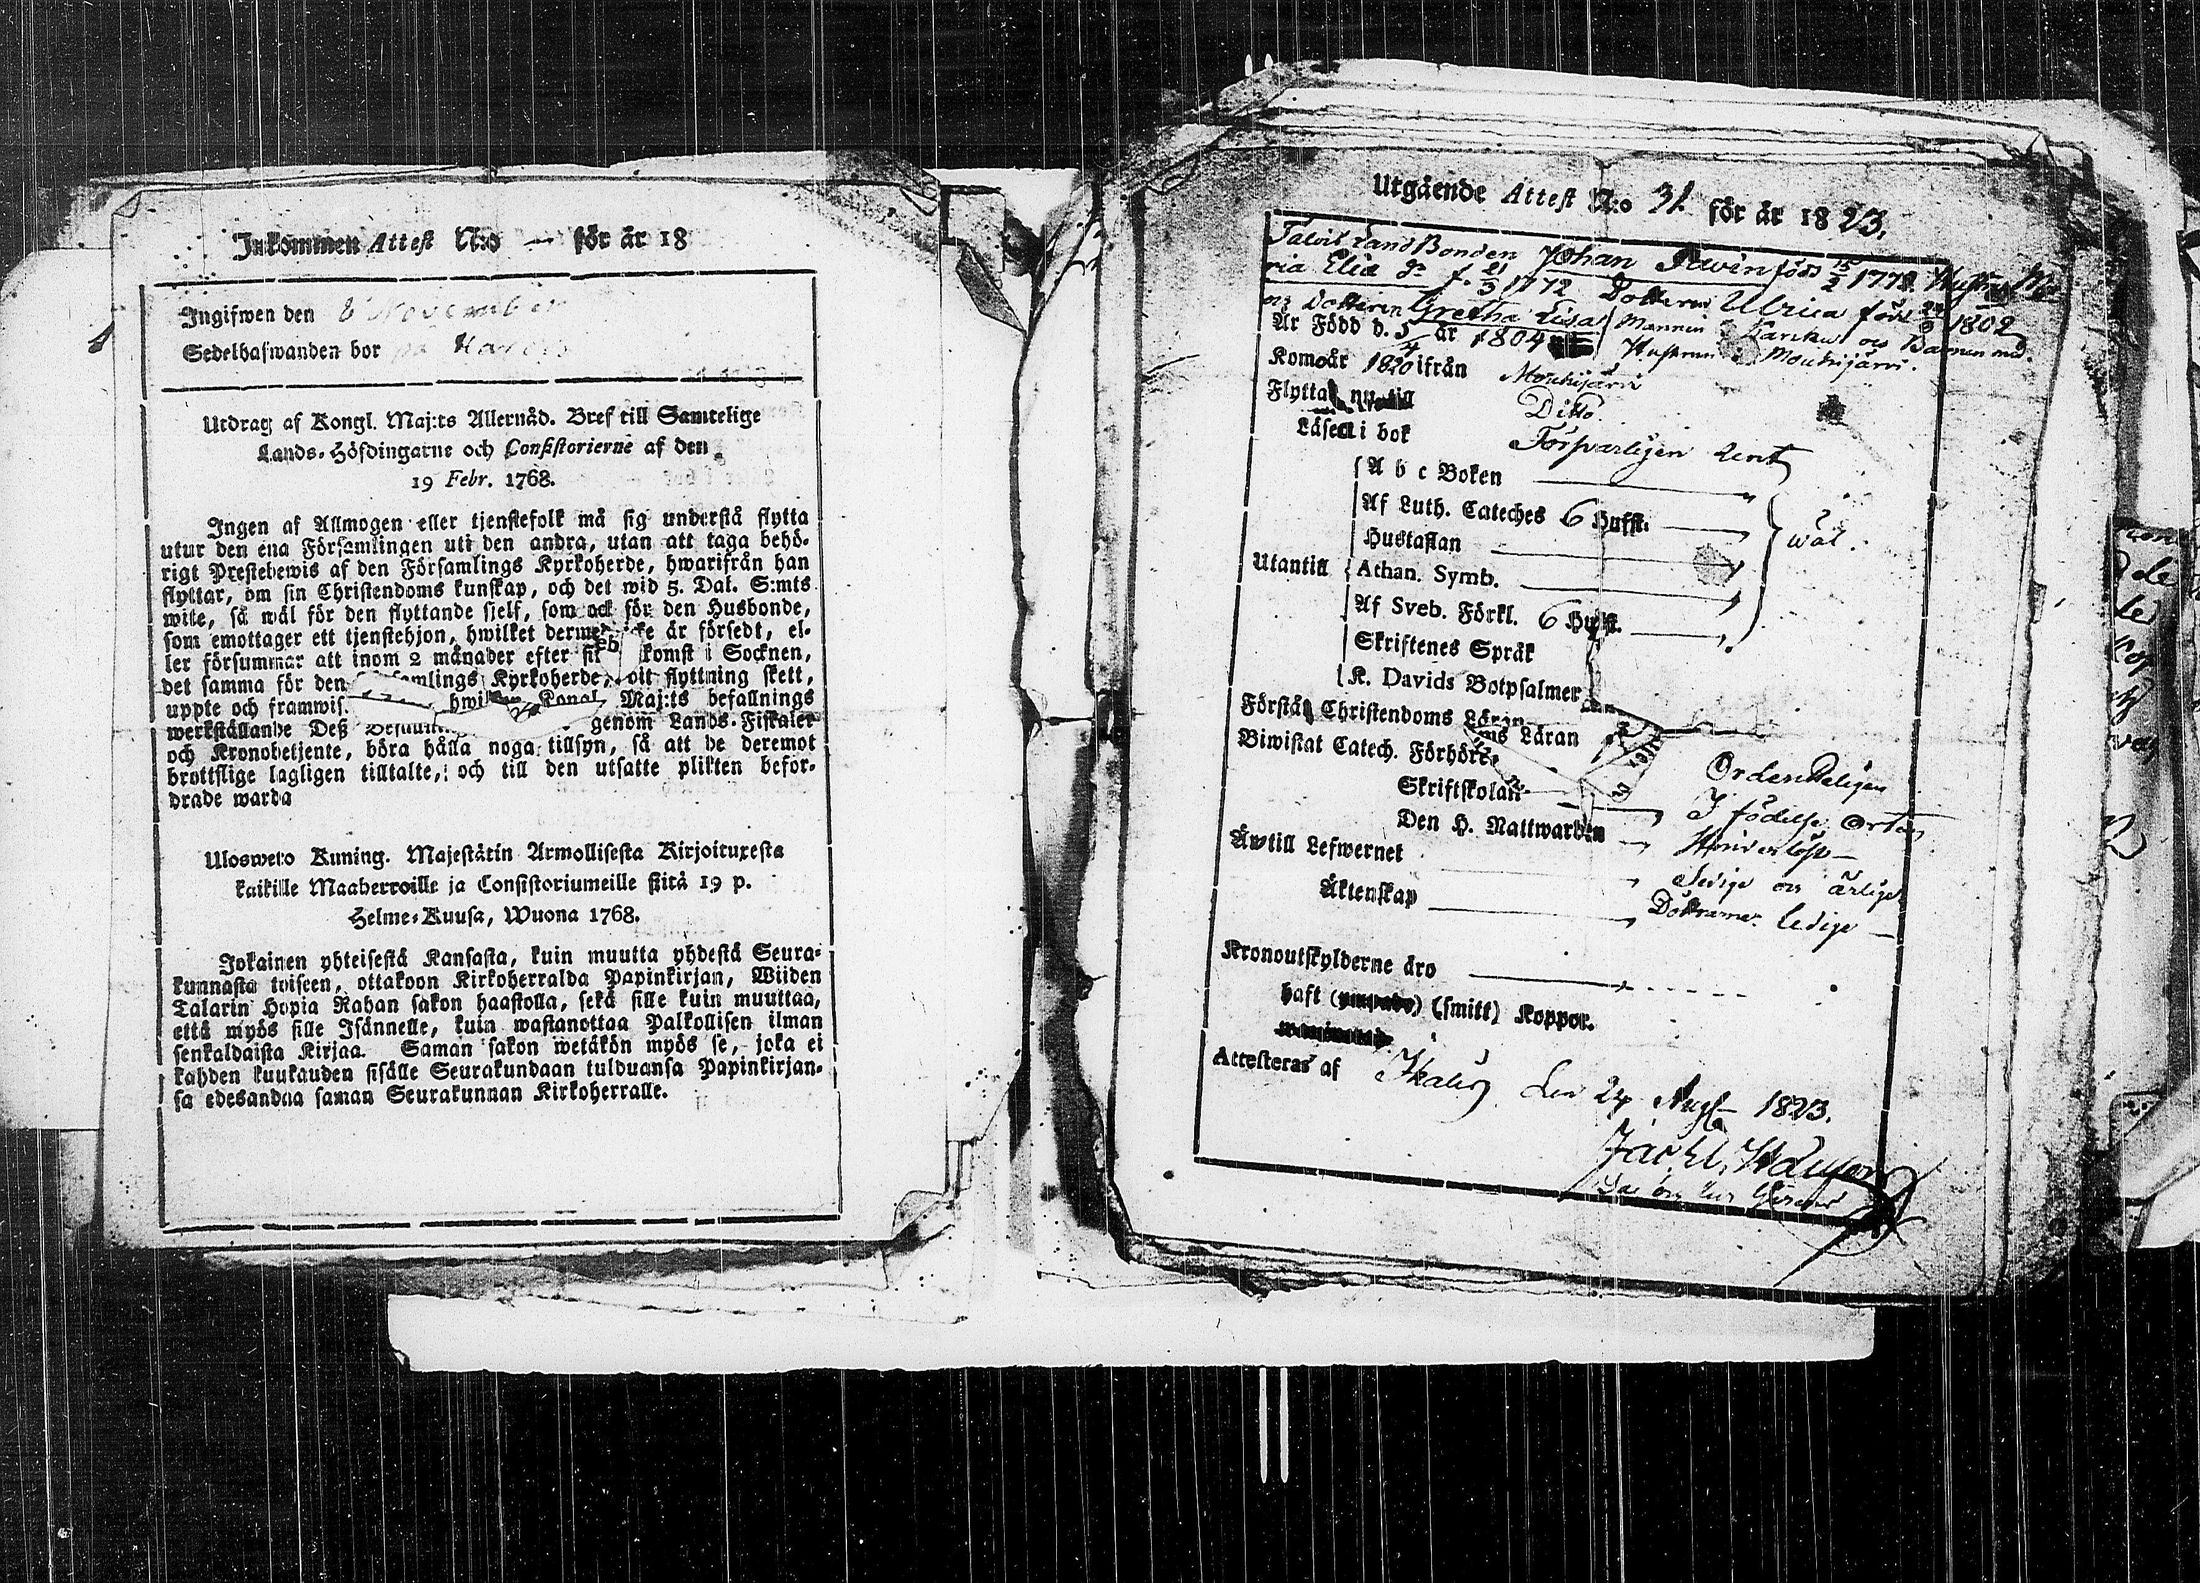 Inkommen Attest N:o — för år 18
Ingifwen den 8 November
Sedelhafwanden bor på
Utdrag af Kongl. Maj:ts Allernåd. Bref till Samtelige
Lands-Höfdingarne och Consistorierne af den
19 Febr. 1768.
Ingen af Allmogen eller tjenstefolk må sig understå flytta
utur den ena Församlingen uti den andra, utan att taga behö-
rigt Prestebewis af den Församlings Kyrkoherde, hwarifrån han
flyttar, om sin Christendoms kunskap, och det wid 5. Dal. S:mts
wite, så wäl för den flyttande sjelf, som ock för den Husbonde,
som emottager ett tjenstehjon, hwilket är försedt, el-
ler försummar att inom 2 månader efter komst i Socknen,
det samma för den Kyrkoherde, flyttning skett,
uppte och framwis. Kongl. Maj:ts befallnings
werkställande Deß genom Lands-Fiskaler
och Kronobetjente, böra hålla noga tillsyn, så att de deremot
brottslige lagligen tilltalte, och till den utsatte plikten befor-
drade warda
Ulosweto Kuning. Majestätin Armollisesta Kirjoituxesta
kaikille Maaherroille ja Consistoriumeille siitä 19 p.
Helme-Kuusa, Wuona 1768.
Jokainen yhteisestä Kansasta, kuin muutta yhdestä Seura-
kunnasta toiseen, ottakoon Kirkoherralda Papinkirjan, Wiiden
Talarin Hopia Rahan sakon haastolla, sekä sille kuin muuttaa,
että myös sille Isännelle, kuin wastanottaa Palkollisen ilman
senkaldaista Kirjaa. Saman sakon wetäkön myös se, joka ei
kahden kuukauden sisälle Seurakundaan tulduansa Papinkirjan-
sa edesandaa saman Seurakunnan Kirkoherralle.
Utgående Attest N:o 31 för år 1823.
Bonden Johan född 15/2 1772 Hustru Ma-
ria f. 21/3 1772 Dottren Ulrica född 24/9 1802
och Dottren Gretha Lisa Mannen och Barnen med
Är Född d. 5/4 år 1804 Hustrun Mouhijärvi.
Kom år 1820 ifrån Mouhijärvi
Flytta nu till Ditto
Läser i bok Försvarligen
Utantill
A b c Boken
Af Luth. Cateches 6 Hufst.
Hustaflan wäl.
Athan. Symb.
Af Sveb. Förkl. 6 Hufst.
Skriftenes Språk
K. Davids Botpsalmer
Förstå Christendoms Läran
Biwistat Catech. Förhören Ordenteligen
Skriftskolan I födelse Orten
Den H. Nattwarden
Äwtill Lefwernet och ärlige
Äktenskap Döttrarne ledige
Kronoutskylderne äro
haft (smitt) Koppor.
Attesteras af den 24 Aug. 1823.